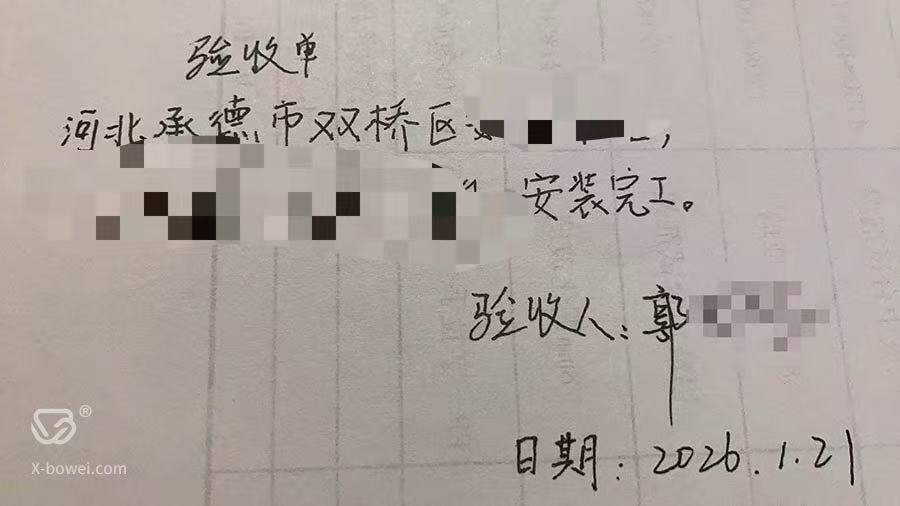 验收单
河北承德市双桥区
安装完工。
验收人：郭
日期：2026.1.21
X-bowei.com